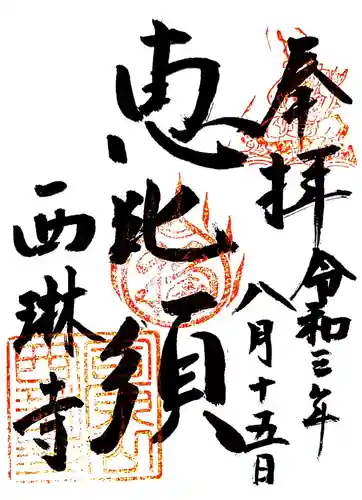 奉拝
令和三年
八月十五日
恵比須
西琳寺